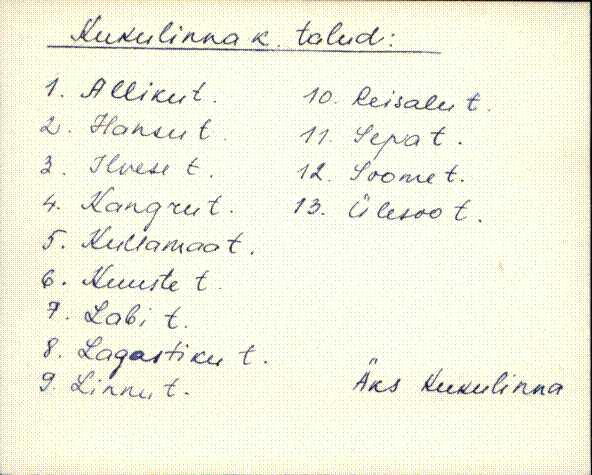 Kukulinna k. talud:
1. Alliku t.
2. Hansu t.
3. Ilvese t.
4. Kangru t.
5. Kullamaa t.
6. Kuuste t.
7. Labi t.
8. Lagastiku t.
9. Linnu t.
10. Reisalu t.
11. Sepa t.
12. Soome t.
13. Ülesoo t.
Äks Kukulinna